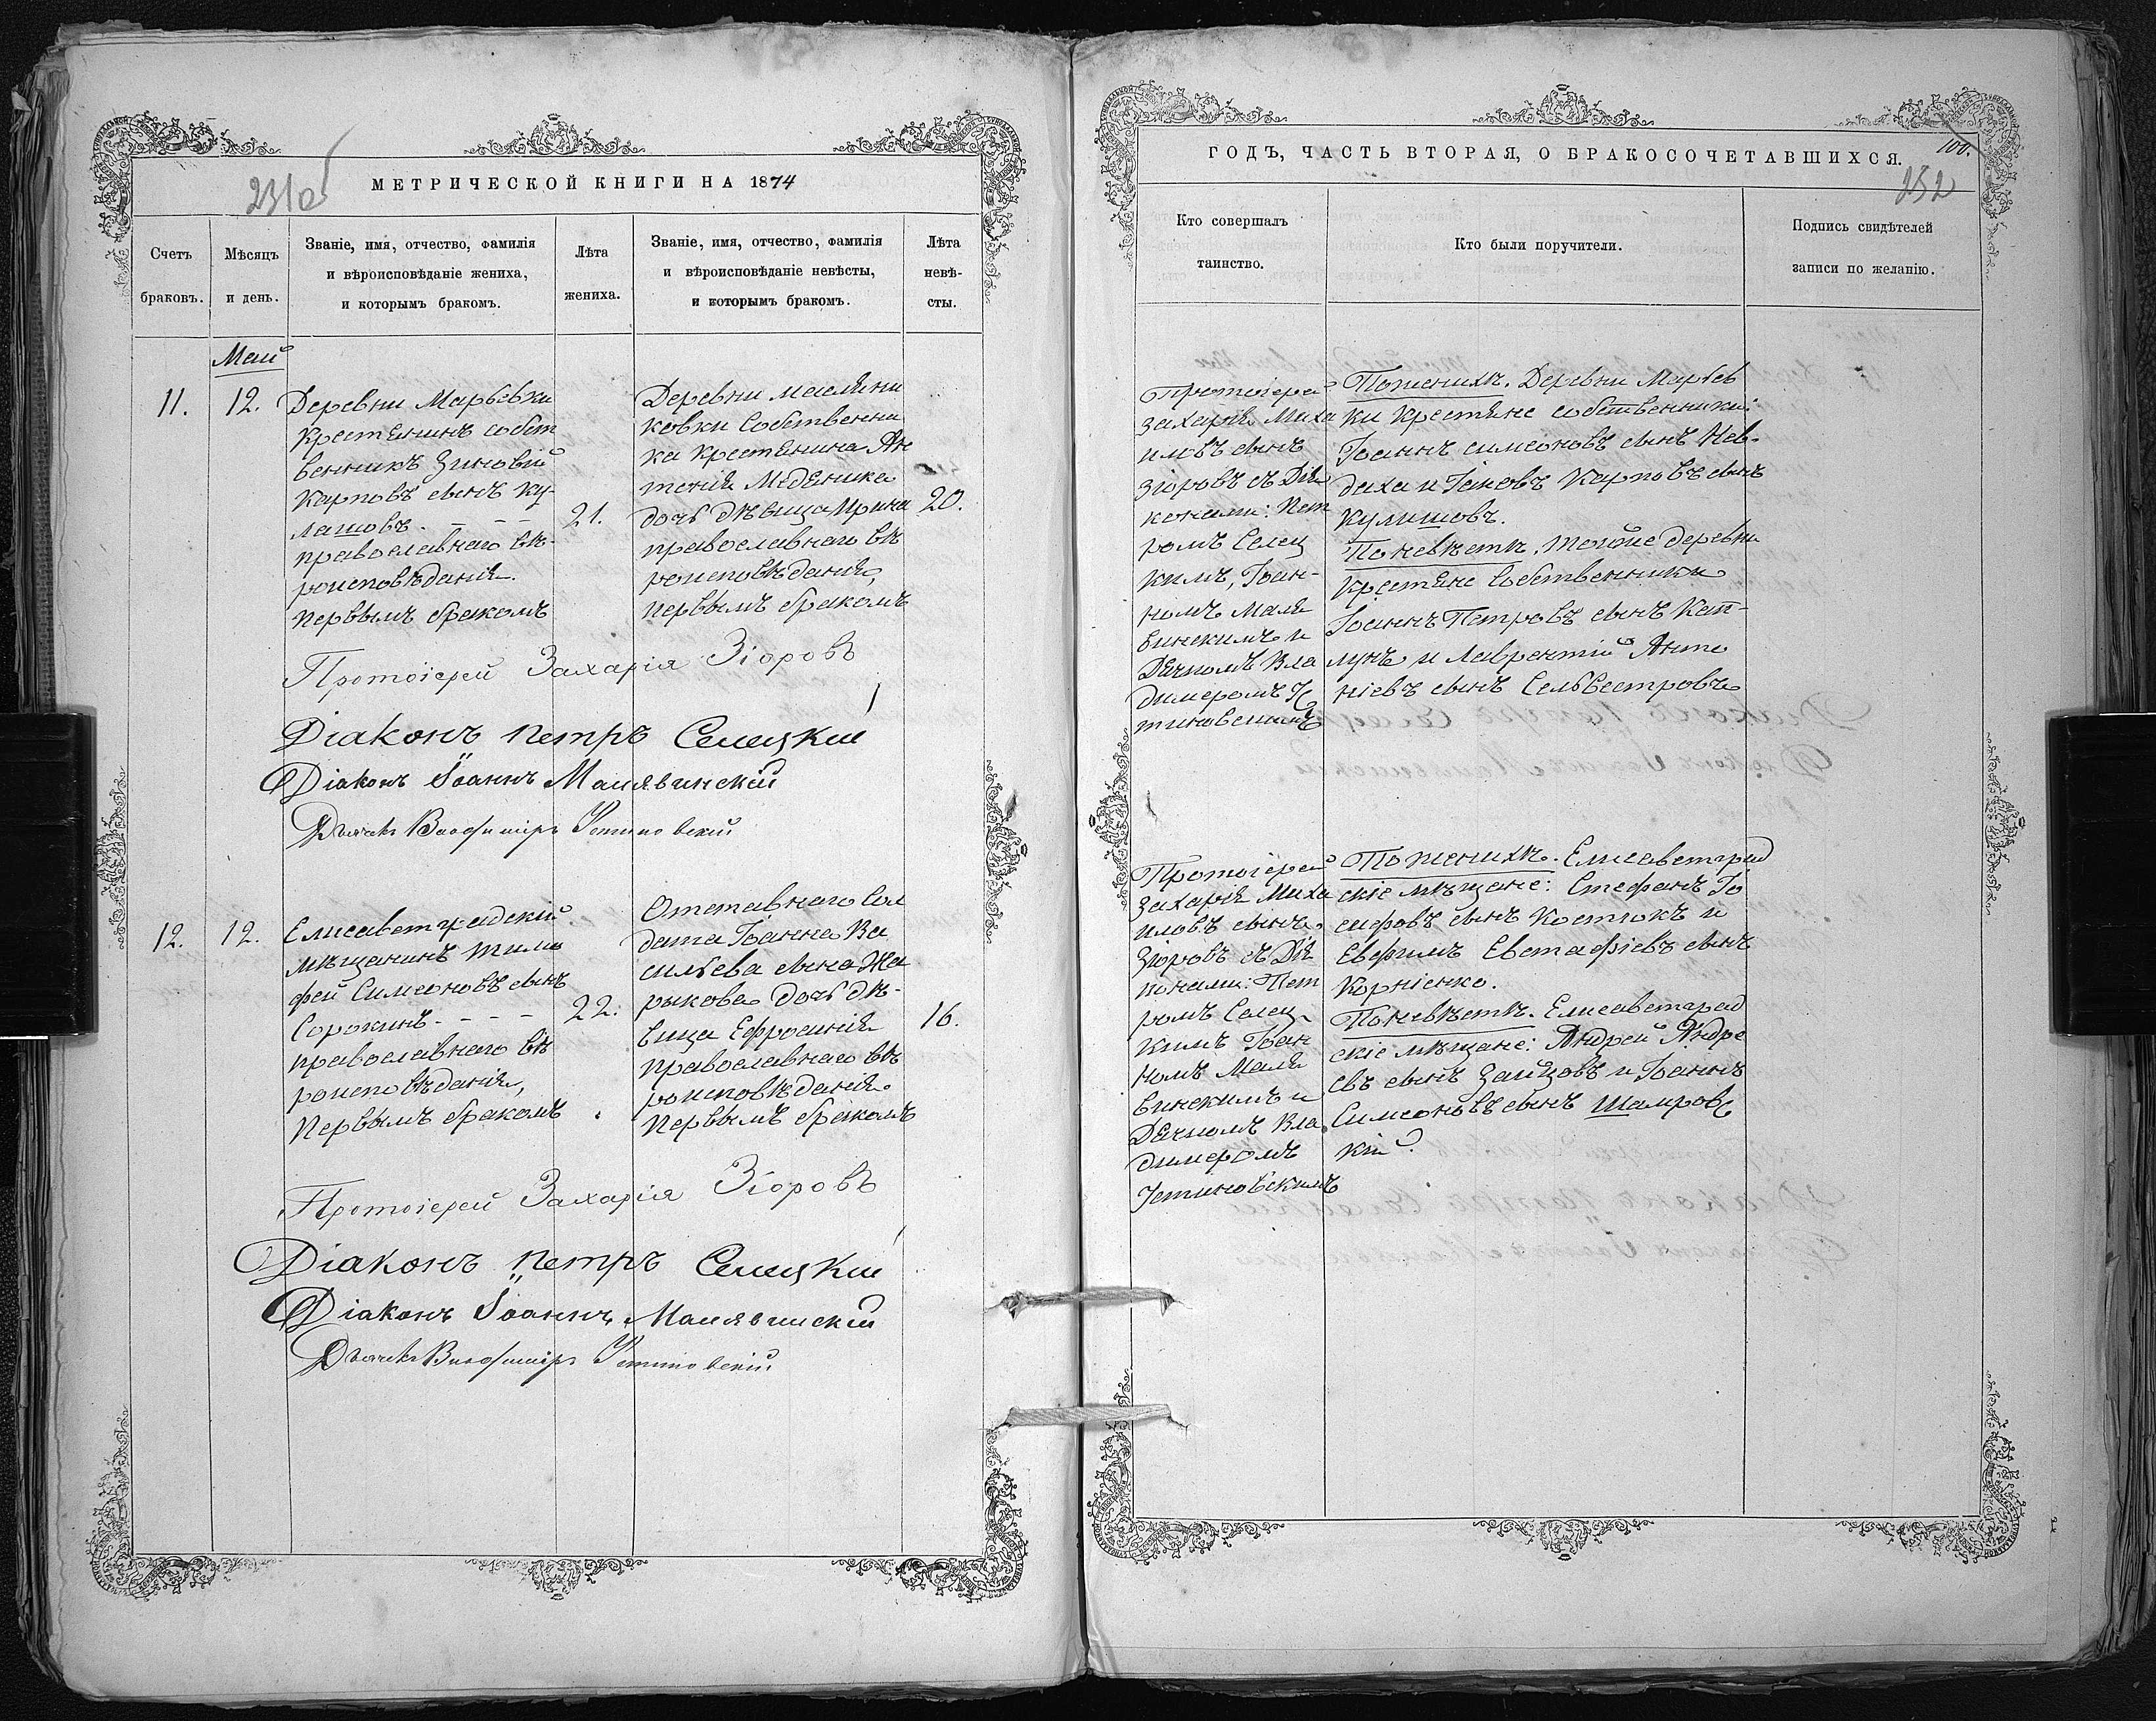 МЕТРИЧЕСКОЙ КНИГИ НА 1874
Счетъ
браковъ.
Мѣсяцъ
и день.
Званіе, имя, отчество, фамилія
и вѣроисповѣданіе жениха,
и которымъ бракомъ.
Лѣта
жениха.
Званіе, имя, отчество, фамилія
и вѣроисповѣданіе невѣсты,
и которымъ бракомъ.
Лѣта
невѣ-
сты.
Май
11.
12.
Деревни Марьевки
крестянинъ собст
венникъ Зиновій
Карповъ сынъ Ку-
лишовъ. - - -
православнаго вѣ-
роисповѣданія.
первымъ бракомъ
21.
Деревни Маслени
ковки собственни
ка крестянина Ан
тонія Медяника
дочь дѣвица Ирина
православнаго вѣ
роисповѣданія,
первымъ бракомъ
20.
Протоіерей Захарія Зіоровъ
Діаконъ Петръ Селецкій
Діаконъ Іоаннъ Малявинскій
Дьячекъ Владиміръ Устиновскій
12.
12.
Елисаветградскій
мѣщанинъ Тимо
фей Симеоновъ сынъ
Сорокинъ. - - -
православнаго вѣ
роисповѣданія,
Первымъ бракомъ
22.
Отставнаго Сол
дата Іоанна Ва
сильева сына Жа
рыкова дочь дѣ-
вица Ефросинія
православнаго вѣ
роисповѣданія.
Первымъ бракомъ
16.
Протоіерей Захарія Зіоровъ
Діаконъ Петръ Селецкій
Діаконъ Іоаннъ Малявинскій
Дьячекъ Владиміръ Устиновскій
ГОДЪ, ЧАСТЬ ВТОРАЯ, О БРАКОСОЧЕТАВШИХСЯ.
100.
232
Кто совершалъ
таинство.
Кто были поручители.
Подпись свидѣтелей
записи по желанію.
Протоіерей
Захарія Миха
иловъ сынъ
Зіоровъ съ Діа
конами: Пет
ромъ Селец
кимъ, Іоан-
номъ Маля
винскимъ и
Дячкомъ Вла
димеромъ Ус
тиновскимъ
По женихѣ. Деревни Марьев
ки крестяне собственники:
Іоаннъ Симеоновъ сынъ Нев-
даха и Іаковъ Карповъ сынъ
Кулишовъ.
По невѣстѣ. Тойже деревни
крестяне собственники
Іоаннъ Петровъ сынъ Кап-
лунъ и Лаврентій Анто
ніевъ сынъ Сельвестровъ
Протоіерей
Захарія Миха
иловъ сынъ
Зіоровъ съ Діа
конами: Пет
ромъ Селец
кимъ Іоан
номъ Маля
винскимъ и
Дячкомъ Вла
димеромъ
Устиновскимъ
По женихѣ. Елисаветград
скіе мѣщане: Стефанъ Іо
сифовъ сынъ Костюкъ и
Евфимъ Евстафіевъ сынъ
Корніенко.
По невѣстѣ. Елисаветград
скіе мѣщане: Андрей Андре
евъ сынъ Зайцовъ и Іоаннъ
Симеоновъ сынъ Шамровс
кій.